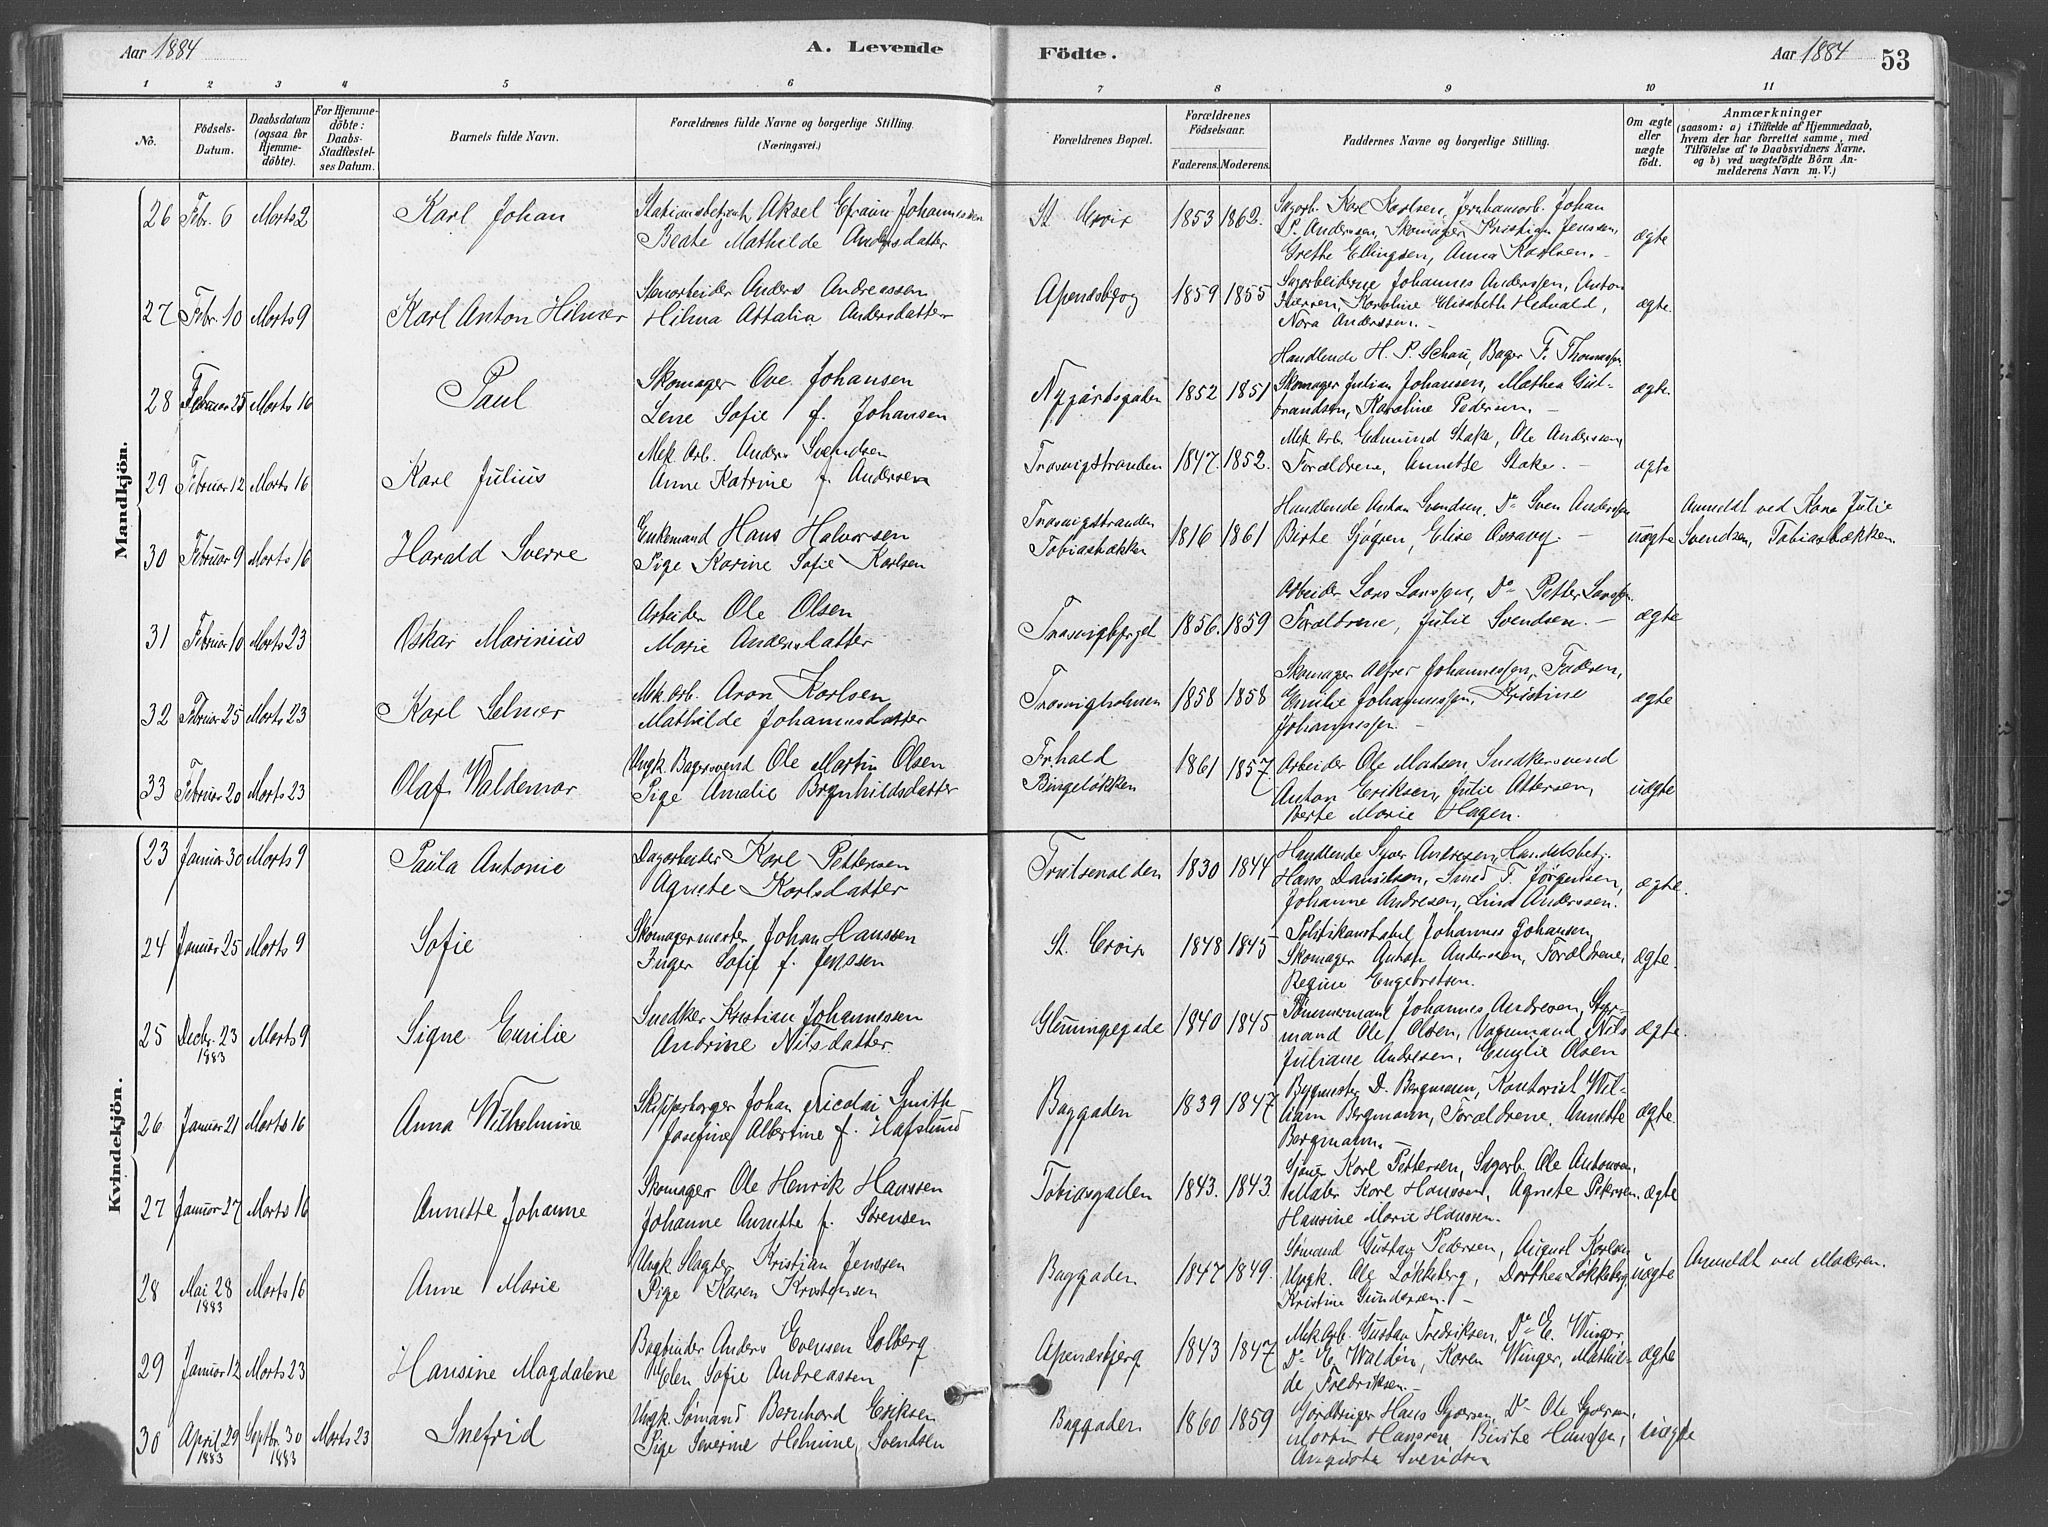 Aar 1884 A. Levende Födte. Aar 1884 53
1 2 3 4 5 6 7 8 9 10 11
No.
Födsels-Datum.
Daabsdatum (ogsaa for Hjemmedöbte).
For Hjemmedöbte: Daabs-Stadfæstelses Datum.
Barnets fulde Navn.
Forældrenes fulde Navne og borgerlige Stilling. (Næringsvei.)
Forældrenes Bopæl.
Forældrenes Födselsaar. Faderens. Moderens.
Faddernes Navne og borgerlige Stilling.
Om ægte eller uægte födt.
Anmærkninger
(saasom: a) i Tilfælde af Hjemmedaab,
hvem der har forrettet samme, med
Tilföielse af to Daabsvidners Navne,
og b) ved uægtefödte Börn Anmelderens Navn m. V.)
Mandkjön.
26 Febr. 6 Marts 2 Karl Johan
Stationsbetjent Aksel Efraim Johannesen
Beate Mathilde Andersdatter
St. Croix 1853 1862.
Sagarb. Karl Karlsen, Jernbanarb. Johan
P. Anderssen, Skomager Kristian Jenssen,
Grethe Ellingsen, Anna Karlsen.
ægte
27 Febr. 10 Marts 9 Karl Anton Hilmer
Stenarbeider Anders Andreassen
Hilma Attalia Andersdatter
1859 1855
Sagarbeiderne Johannes Anderssen, Anton
Karoline Elisabeth Hedvald,
Nora Anderssen.
ægte
28 Februar 25 Marts 16 Paul
Skomager Ove Johansen
Lene Sofie f. Johansen
Nygårdsgaden 1852 1851
Handlende H. P. Schau, Bager F. Thomassen
Skomager Julian Johansen, Mathea Gulbrandsen, Karoline Pedersen.
ægte
29 Februar 12 Marts 16 Karl Julius
Mek. Arb. Anders Svendsen
Anne Katrine f. Andersen
Trosvigstranden 1847. 1852.
Mek. Arb. Edmund Stake, Ole Anderssen,
Forældrene, Annette Stake.
ægte
30 Februar 9 Marts 16 Harald Sverre
Enkemand Hans Halvorsen
Pige Karine Sofie Karlsen
Trosvigstranden
Tobiasbækken
1816 1861
Handlende Anton Svendsen, Do Sven Anderssen
Birte Sjøgren, Elise
uægte
Anmeldt ved Kone Julie
Svendsen, Tobiasbækken.
31 Februar 10 Marts 23 Oskar Marinius
Arbeider Ole Olsen
Marie Andersdatter
Trosvigbjerget 1856. 1859
Arbeider Lars Larssen, Do Petter Larssen
Forældrene, Julie Svendsen.
ægte
32 Februar 25 Marts 23 Karl Selmer
Mek. Arb. Aron Karlsen
Mathilde Johannesdatter
Trosvigholmen 1858 1858
Skomager Alfred Johannessen, Faderen,
Emilie Johannessen, Kristine
Johannessen.
ægte
33 Februar 20 Marts 23 Olaf Waldemar
Ungk. Bagersvend Ole Martin Olsen
Pige Amalie Brynhildsdatter
Frhald
Bingeløkken
1861 1857
Arbeider Ole Madsen Snedkersvend
Anton Eriksen, Julie Attersen,
Berte Marie Hagen.
uægte
Kvindekjön.
23 Januar 30 Marts 9 Paula Antonie
Dagarbeider Karl Pettersen
Agnete Karlsdatter
1830 1844
Handlende Syver Andresen, Handelsbetj.
Hans Danielsen, Smed T. Jørgensen,
Johanne Andresen, Lina Anderssen.
ægte.
24 Januar 25 Marts 9 Sofie
Skomagermester Johan Hanssen
Inger Sofie f. Jenssen
St. Croix 1848 1845
Politikonstabel Johannes Johansen,
Skomager Anton Anderssen, Forældrene,
Regine Engebretsen.
ægte.
25 Decbr. 23 1883 Marts 9 Signe Emilie
Snedker Kristian Johannesen
Andrine Nilsdatter
Glemmingegade 1840 1845
Tømmermand Johannes Andresen, Styrmand Ole Olsen, Vognmand Nils
Juliane Andresen, Emilie Olsen
ægte.
26 Januar 21 Marts 16 Anna Wilhelmine
Skipperborger Johan Nicolai Smith
Josefine Albertine f. Hafslund
Baggaden 1839 1847
Bygmester D. Bergmann, Kontorist William Bergmann, Forældrene, Annette
Bergmann.
ægte
27 Januar 27 Marts 16 Annette Johanne
Skomager Ole Henrik Hanssen
Johanne Annette f. Sørensen
Tobiasgaden 1843. 1843.
Karl Pettersen, Sagarb. Ole Antonsen,
Maler Karl Hanssen, Agnete Petersen.
Hansine Marie Hanssen.
ægte
28 Mai 28 1883 Marts 16 Anne Marie
Ungk. Slagter Kristian Jenssen
Pige Karen Kristensen
Baggaden 1847 1849.
Sømand Gustav Pedersen, August Karlsen
Ungk. Ole Løkkeberg, Dorthea Løkkeberg,
Kristine Gundersen.
uægte
Anmeldt ved Moderen.
29 Januar 12 Marts 23 Hansine Magdalene
Bogbinder Anders Evensen Solberg
Elen Sofie Andreassen
Apenæsbjerg 1843 1847
Mek. Arb. Gustav Fredriksen, Do E. Winger,
Do E. Waldén, Karen Winger, Mathilde Fredriksen.
ægte
30 April 29 1883 Septbr. 30 1883 Marts 23 Snefrid
Ungk. Sømand Bernhard Eriksen
Pige Severine Helmine Svendsen
Baggaden 1860 1859
Gårdbruger Hans Syversen, Do Ole Syversen,
Martin Hanssen, Birthe Hanssen,
Augusta Svendsen
uægte